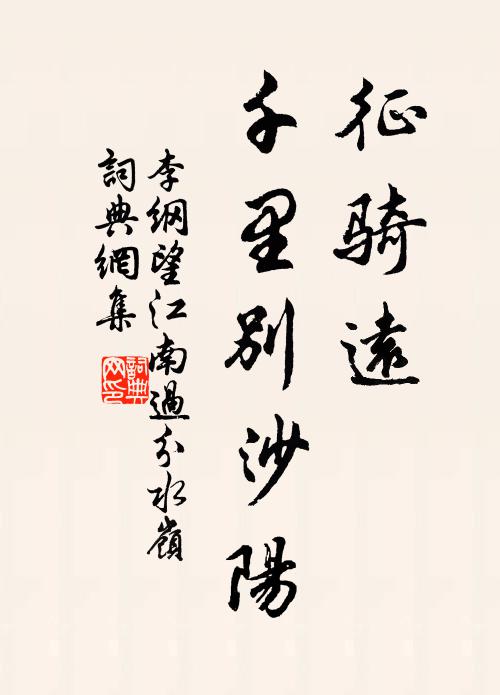 征騎遠
千里別沙陽
李綱望江南過分水嶺
詞典網集
詞典
网印